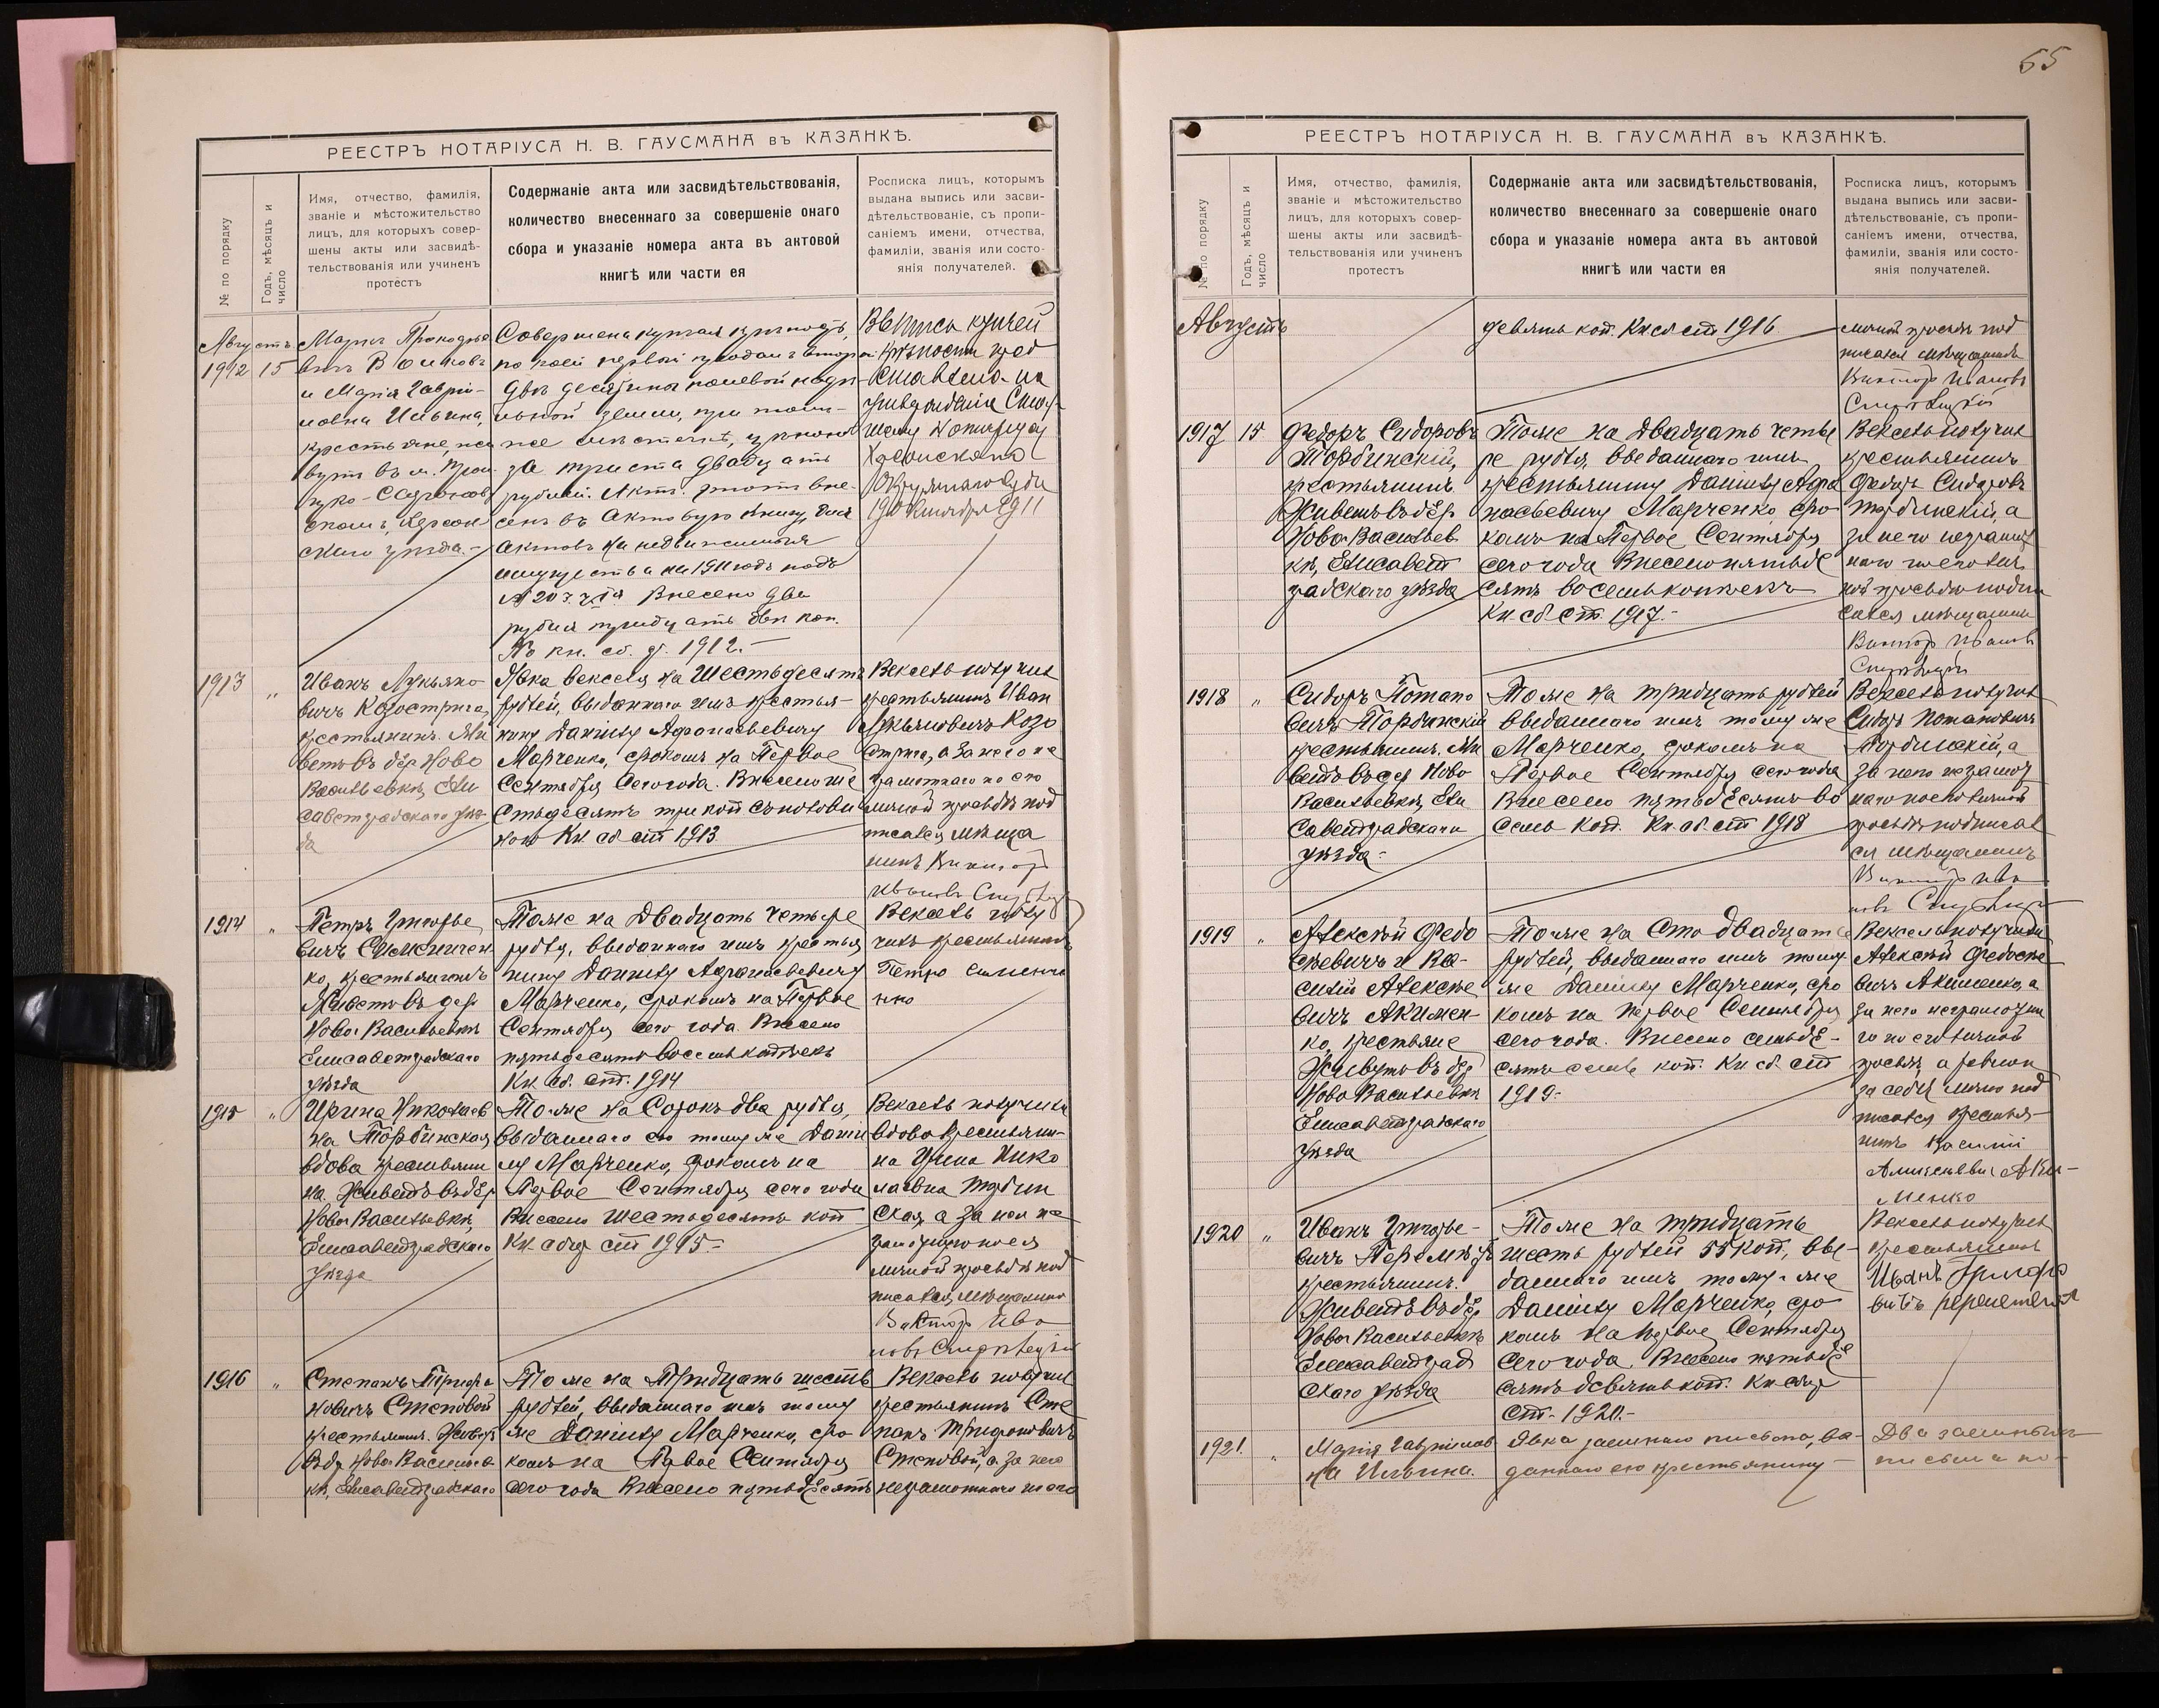 55
РЕЕСТРЪ НОТАРІУСА Н. В. ГАУСМАНА въ КАЗАНКѢ.
№ по порядку
Годъ, мѣсяцъ и
число
Имя, отчество, фамилія,
званіе и мѣстожительство
лицъ, для которыхъ совер-
шены акты или засвидѣ-
тельствованія или учиненъ
протестъ
Содержаніе акта или засвидѣтельствованія,
количество внесеннаго за совершеніе онаго
сбора и указаніе номера акта въ актовой
книгѣ или части ея
Росписка лицъ, которымъ
выдана выпись или засви-
дѣтельствованіе, съ пропи-
саніемъ имени, отчества,
фамиліи, званія или состо-
янія получателей.
Августъ
1912 15
и Марія Гаври-
ловна Ильина,
крестьяне, жи
вутъ въ м.
Херсон
скаго уѣзда.-
Совершена купчая крѣпость,
по коей первый продалъ второй
двѣ десятины полевой надѣ
льной земли, при томъ-
же мѣстечкѣ, цѣною
за триста двадцать
рублей. Актъ этотъ вне-
сенъ въ Актовую книгу для
актовъ на недвижимыя
имущества на 1911 годъ подъ
Внесено два
рубля тридцать две коп.
По кн. сб. 1912.-
Выпись купчей
крѣпости пред
ставлена на
утвержденіе Стар-
шему Нотаріусу
Херсонскаго
Окружнаго Суда
1913 "
Иванъ Лукьяно
вичъ Козострига,
крестьянинъ. Жи
ветъ въ дер. Ново
Васильевкѣ, Ели
саветградскаго уѣз-
да
Явка векселя на Шестьдесятъ
рублей, выданнаго имъ крестья-
нину Данилу Афонасьевичу
Марченко, срокомъ на Первое
Сентября Сего года. Внесено ше
стьдесятъ три коп съ полови
ною Кн. сб. ст 1913
Вексель получилъ
крестьянинъ Иван
Лукьяновичъ Козо
стрига, а за него не
грамотнаго по его
личной просьбѣ под
писался мѣща
нинъ Виктор
Ивановъ
1914 "
Петръ Григорье
вичъ Симинчен
ко, крестьянинъ
Живетъ въ дер
Ново Васильевкѣ
Елисаветградскаго
уѣзда
Тоже на Двадцать четыре
рубля, выданнаго имъ крестья
нину Данилу Афанасьевичу
Марченко, срокомъ на Первое
Сентября сего года. Внесено
пятьдесятъ восемь копѣекъ
Кн. сб. ст. 1914
Вексель полу
чилъ крестьянинъ
Петро Симинче
нко
1915 "
Ирина Николаев
на Торбинская,
вдова крестьяни
на. Живетъ въ дер
Ново Васильевкѣ,
Елисаветградскаго
уѣзда
Тоже на Сорокъ два рубля,
выданнаго ею тому же Дани
лу Марченко, срокомъ на
Первое Сентября сего года
Внесено Шестьдесятъ коп
Кн. сбор ст 1915-
Вексель получила
вдова крестьяни-
на Ирина Нико
лаевна Торбин
ская, а за нея не
грамотную по ея
личной просьбѣ под
писался, мѣщанинъ
Виктор Ива
новъ
1916 "
Степанъ Трифо
новичъ Степовой
крестьянинъ. Живетъ
въ др Ново Василье
кѣ, Елисаветградскаго
Тоже на Тридцать шесть
рублей, выданнаго имъ тому
же Данилу Марченко, сро
комъ на Первое Сентября
сего года Внесено пятьдесятъ
Вексель получил
крестьянинъ Сте
панъ Трифоновичъ
Степовой, а за него
неграмотнаго по его
РЕЕСТРЪ НОТАРІУСА Н. В. ГАУСМАНА въ КАЗАНКѢ.
№ по порядку
Годъ, мѣсяцъ и
число
Имя, отчество, фамилія,
званіе и мѣстожительство
лицъ, для которыхъ совер-
шены акты или засвидѣ-
тельствованія или учиненъ
протестъ
Содержаніе акта или засвидѣтельствованія,
количество внесеннаго за совершеніе онаго
сбора и указаніе номера акта въ актовой
книгѣ или части ея
Росписка лицъ, которымъ
выдана выпись или засви-
дѣтельствованіе, съ пропи-
саніемъ имени, отчества,
фамиліи, званія или состо-
янія получателей.
Августъ
девять коп. Кн сб ст 1916
личной просьбѣ под
писался мѣщанинъ
Виктор Ивановъ
1917 15
Федоръ Сидоровъ
Торбинскій,
крестьянинъ.
Живетъ въ дер
Ново Васильев
кѣ, Елисавет
градскаго уѣзда
Тоже на Двадцать четы
ре рубля, выданнаго имъ
крестьянину Данилу Афа
насьевичу Марченко, сро
комъ на Первое Сентября
сего года Внесено пятьде
сятъ восемь копѣекъ
Кн. сб ст. 1917.-
Вексель получил
крестьянинъ
Федоръ Сидоровъ
Торбинскій, а
за него неграмот
наго по его лич
ной просьбѣ подпи
сался мѣщанинъ
Виктор Ивановъ
1918 "
Сидоръ Потапо
вичъ Торбинскій
крестьянинъ. Жи
ветъ въ дер Ново
Васильевкѣ, Ели
саветградскаго
уѣзда-
Тоже на тридцать рублей
выданнаго имъ тому же
Марченко, срокомъ на
Первое Сентября сего года
Внесено пятьдесятъ во
семь коп. Кн. сб. ст 1918
Вексель получил
Сидоръ Потаповичъ
Торбинскій, а
за него неграмот
наго по его личной
просьбѣ подписал
ся мѣщанинъ
Виктор Ива
новъ
1919 "
Алексѣй Федо
сѣевичъ и Ва-
силій Алексѣе
вичъ Акимен-
ко, крестьяне
Живутъ въ дер
Ново Васильевкѣ
Елисаветградскаго
уѣзда
Тоже на Сто двадцать
рублей, выданнаго имъ тому
же Данилу Марченко, сро
комъ на Первое Сентября
сего года. Внесено семьде-
сятъ семь коп. Кн сб. ст
1919-
Вексель получили
Алексѣй Федосѣе
вичъ Акименко, а
за него неграмотна
го по его личной
просьбѣ,
за себя лично под
писался крестья-
нинъ Василій
Алексѣевич Аки-
менко
1920 "
Иванъ Григорье-
вичъ
крестьянинъ.
Живетъ въ дер
Ново Васильевкѣ
Елисаветград
скаго уѣзда
Тоже на тридцать
шесть рублей 55 коп, вы-
даннаго имъ тому-же
Данилу Марченко, сро
комъ на Первое Сентября
сего года. Внесено пятьде
сятъ девять коп. Кн сбор
ст. 1920.-
Вексель получил
крестьянинъ
Иванъ Григоре
1921. "
Марія Гаврилов
на Ильина.
Явка заемнаго письма, вы-
даннаго ею крестьянину-
Два заемныхъ
письма по-